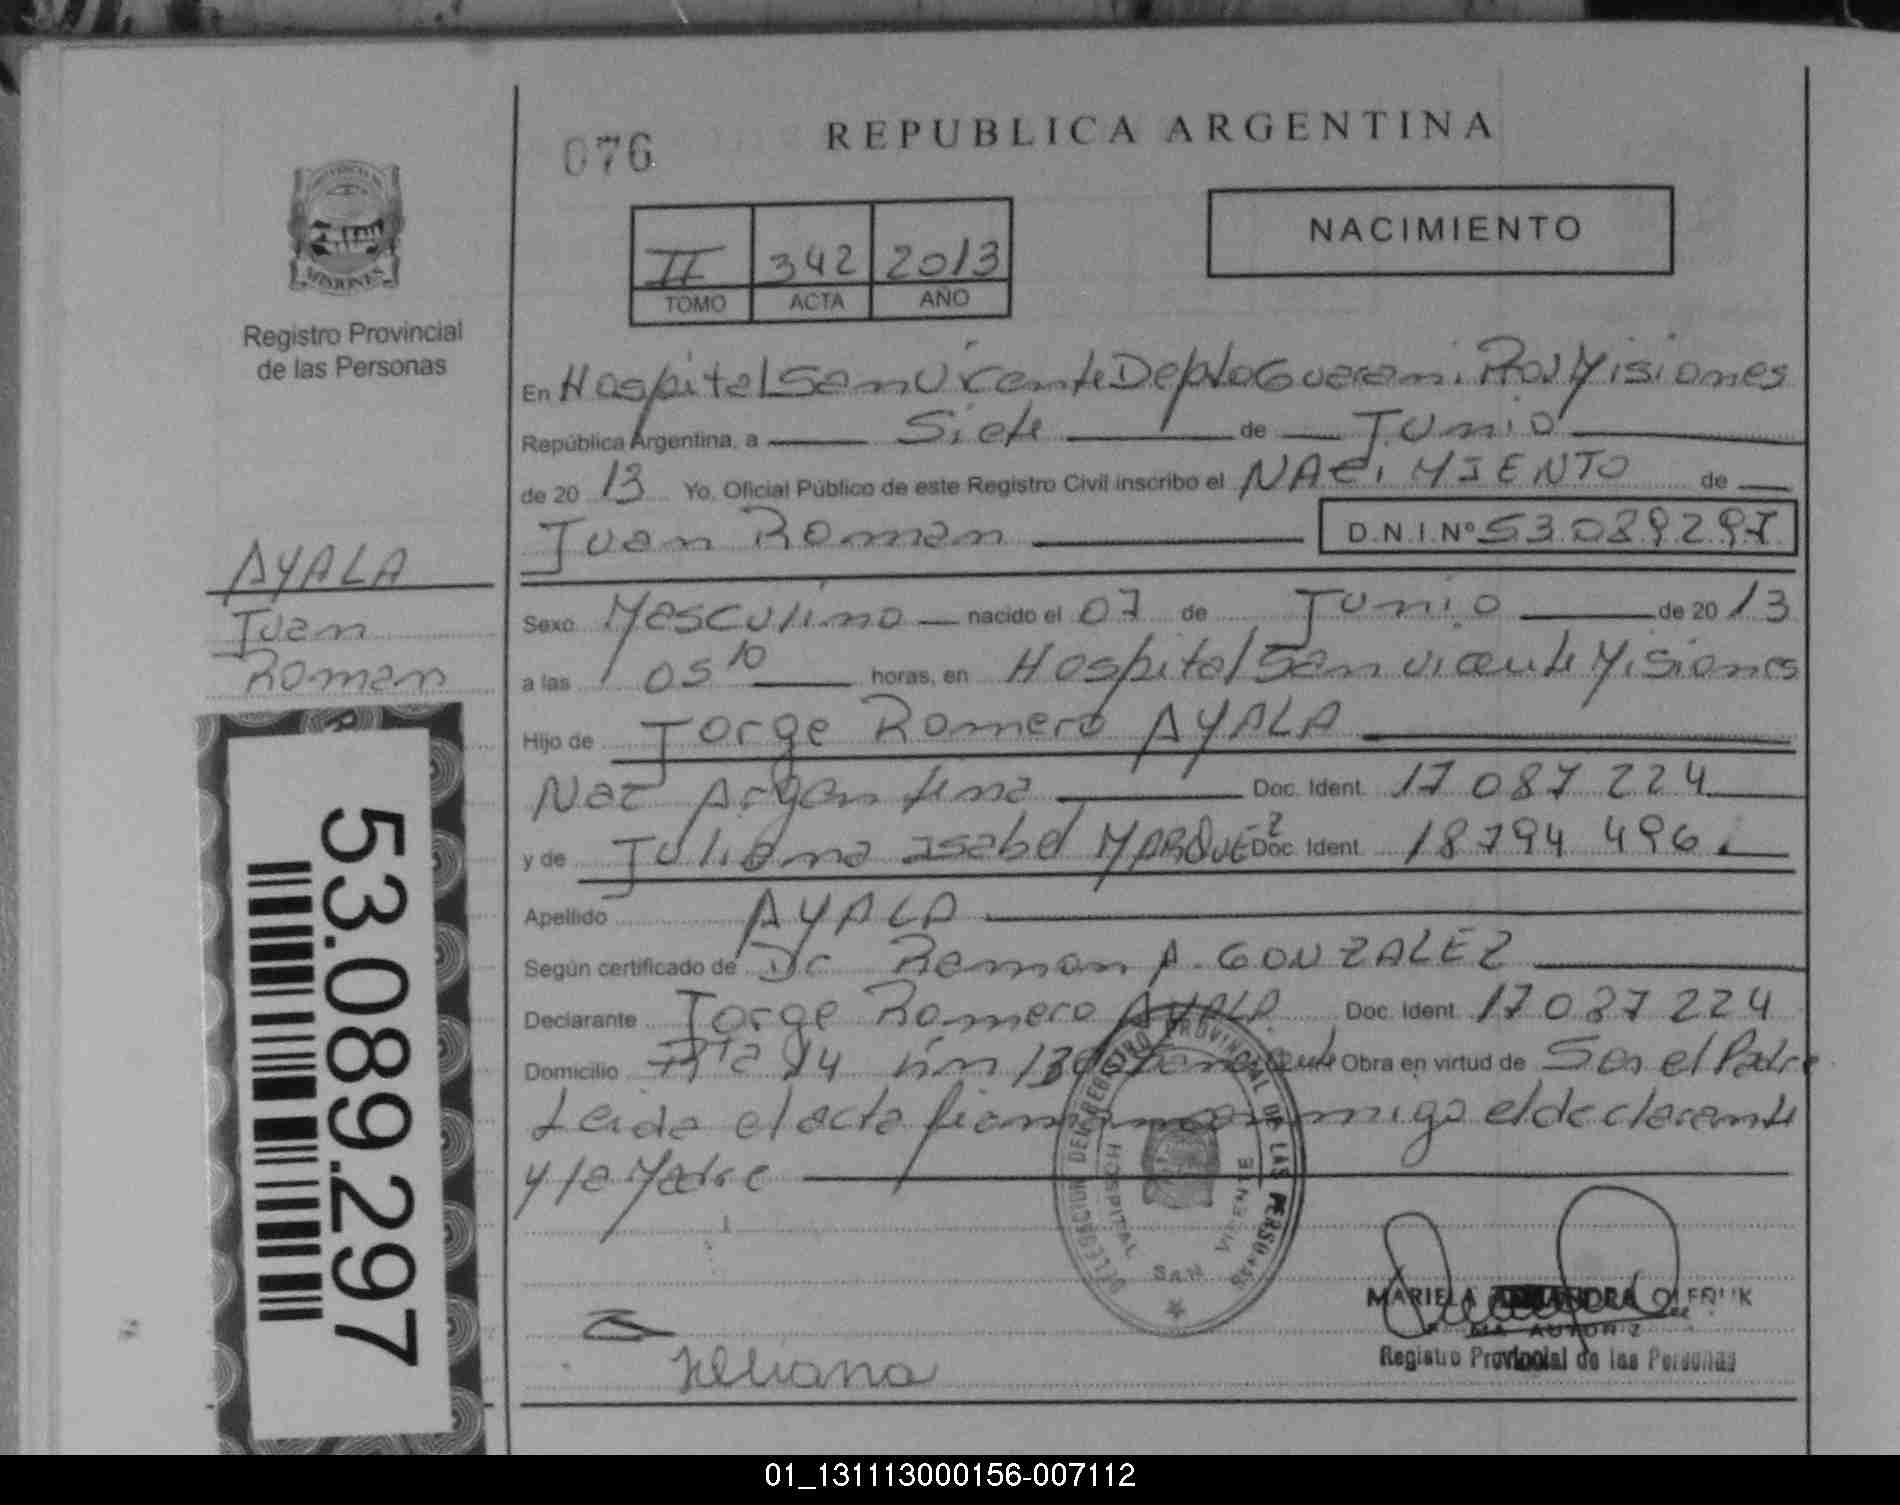 076
REPUBLICA ARGENTINA
NACIMIENTO
II 342 2013
TOMO ACTA AÑO
MISIONES
Registro Provincial
de las Personas
En Hospital San Vicente Depto Guarani. Prov Misiones
República Argentina, a Siete de Junio
de 2013 Yo, Oficial Público de este Registro Civil inscribo el NACIMIENTO de
Juan Roman D.N.I.Nº 53.089.297
AYALA
Juan
Roman
Sexo Masculino nacido el 07 de Junio de 2013
a las 05 10 horas, en Hospital San Vicente Misiones
Hijo de Jorge Romero AYALA
Nac Argentina Doc. Ident. 17 087 224
y de Juliana Isabel MARQUEZ Doc. Ident. 18794 496.
Apellido AYALA
Según certificado de Dr Ramon A. GONZALEZ
Declarante Jorge Romero AYALA Doc. Ident. 17087224
Domicilio Rta 14 Km Obra en virtud de Ser el Padre
Leida el acta firman conmigo el declarante
y la Madre
DELEGACION DEL REGISTRO PROVINCIAL DE LAS PERSONAS
HOSPITAL SAN VICENTE
MARIELA
Registro Provincial de las Personas
Juliana
53.089.297
01_131113000156-007112